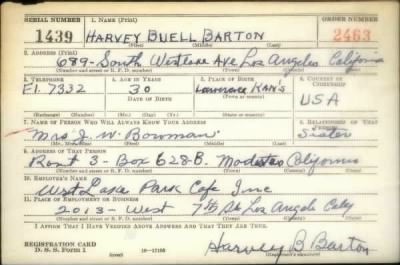 SERIAL NUMBER 1. NAME (Print) ORDER NUMBER
1439 HARVEY BUELL BARTON 2463
(First) (Middle) (Last)
2. ADDRESS (Print)
689- South Westlake Ave Los Angeles California
(Number and street or R. F. D. number) (Town) (County) (State)
3. TELEPHONE 4. AGE IN YEARS 5. PLACE OF BIRTH 6. COUNTRY OF CITIZENSHIP
EX. 7332 30 Lawrence Kan's
DATE OF BIRTH (Town or county) USA
(Exchange) (Number) (Mo.) (Day) (Yr.) (State or country)
7. NAME OF PERSON WHO WILL ALWAYS KNOW YOUR ADDRESS 8. RELATIONSHIP OF THAT PERSON
Mrs J. W. Bowman Sister
(Mr., Mrs., Miss) (First) (Middle) (Last)
9. ADDRESS OF THAT PERSON
Rout 3 - Box 628-B. Modesto California
(Number and street or R. F. D. number) (Town) (County) (State)
10. EMPLOYER'S NAME
West Lake Park Cafe Inc
11. PLACE OF EMPLOYMENT OR BUSINESS
2013 - West 7th St Los Angeles
(Number and street or R. F. D. number) (Town) (County) (State)
I AFFIRM THAT I HAVE VERIFIED ABOVE ANSWERS AND THAT THEY ARE TRUE.
REGISTRATION CARD
D. S. S. Form 1 16-17105 Harvey B Barton